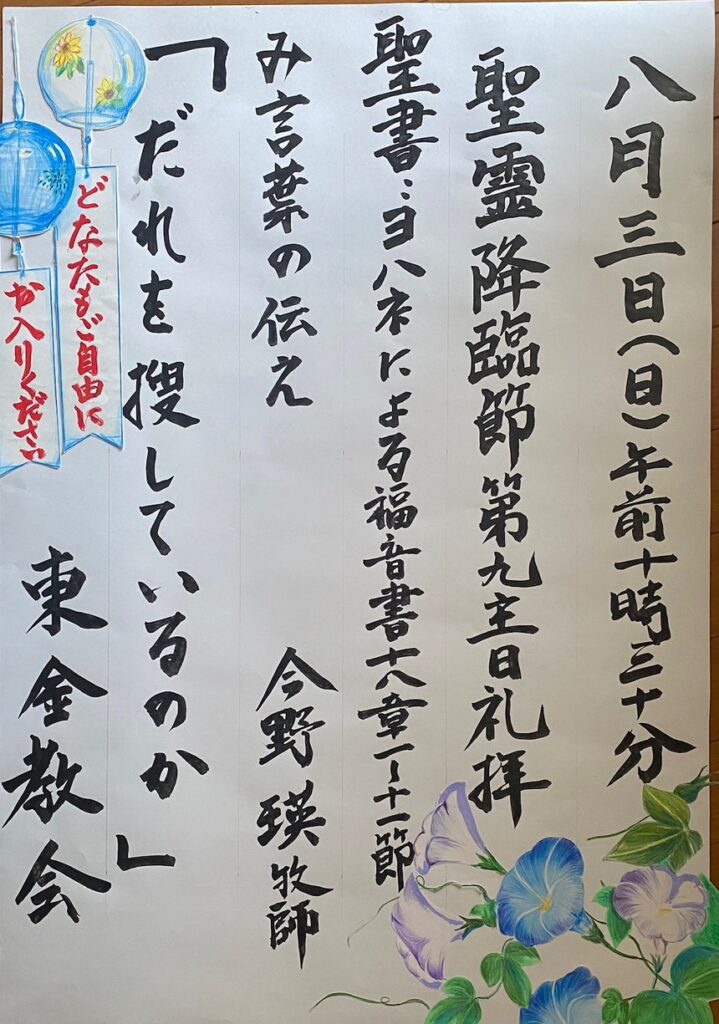 八月三日(日)午前十時三十分
聖霊降臨節第九主日礼拝
聖書:ヨハネによる福音書十八章一~十一節
み言葉の伝え
今野 瑛牧師
「だれを捜しているのか」
東金教会
どなたもご自由に
お入りください